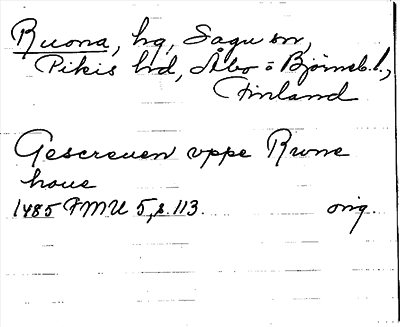 Ruona, hg, Sagu sn,
Pikis hd, Åbo o Björneb. l.,
Finland
Gescreuen vppe Rwne
houe
1485 FMU 5, s. 113. orig.